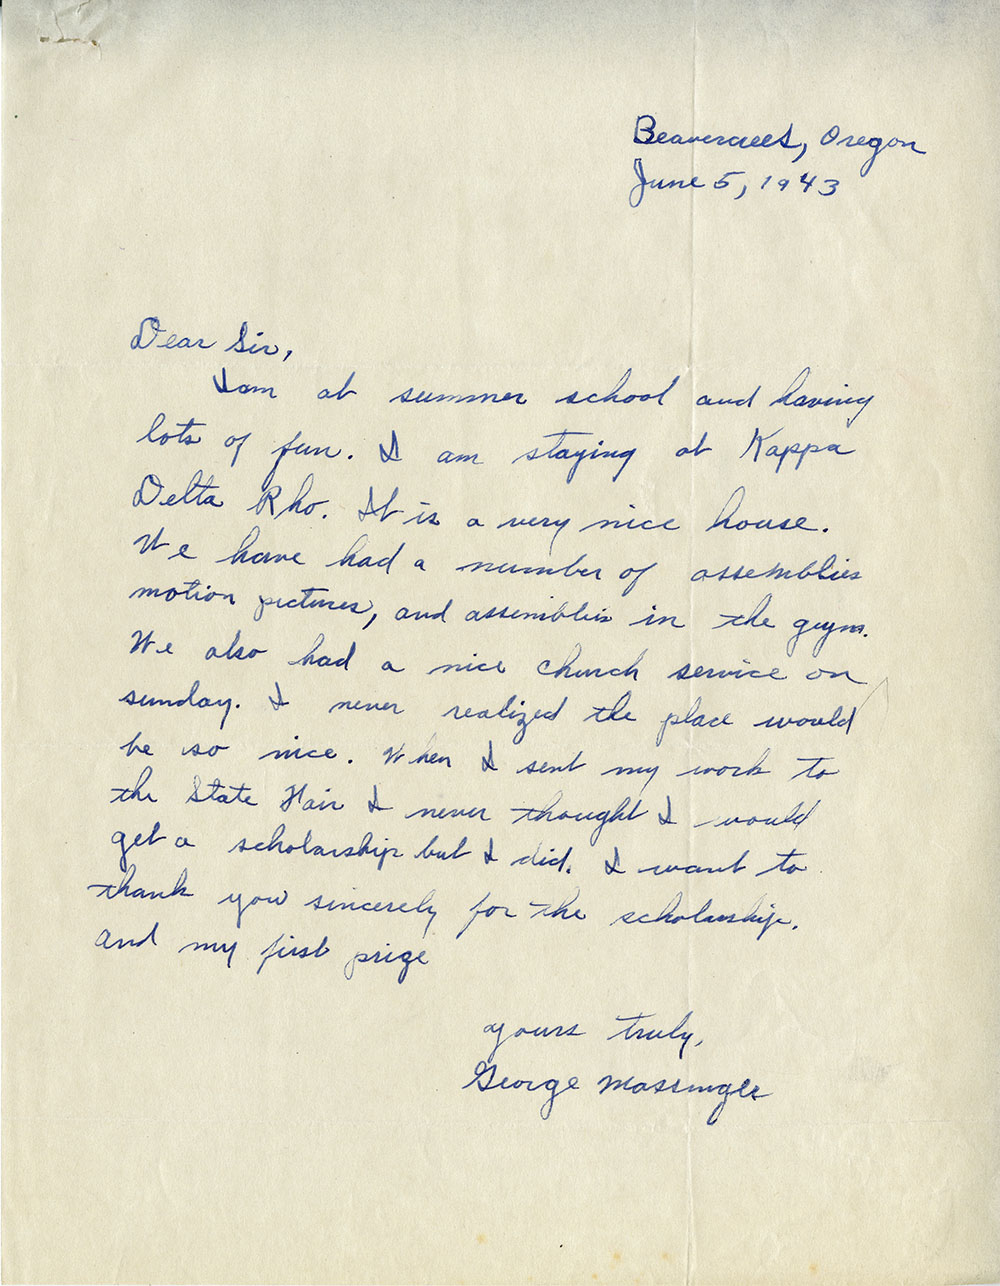 Beavercreek, Oregon
June 5, 1943
Dear Sir,
I am at summer school and having
lots of fun. I am staying at Kappa
Delta Rho. It is a very nice house.
We have had a number of assemblies
motion pictures, and assemblies in the guym.
We also had a nice church service on
sunday. I never realized the place would
be so nice. When I sent my work to
the State Fair I never thought I would
get a scholarship but I did. I want to
thank you sincerely for the scholarship.
and my first prize
yours truly,
George